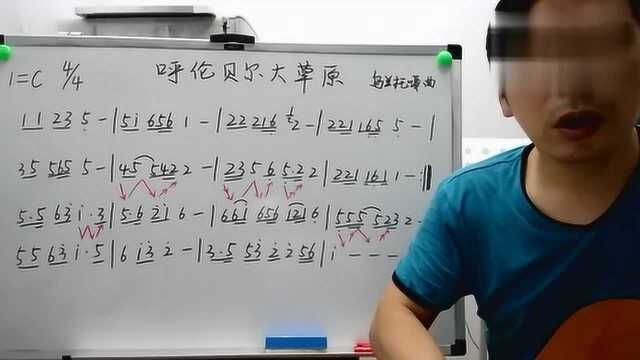 1=C 4/4 呼伦贝尔大草原 乌兰托嘎曲
11 23 5 - | 5i 656 1 - | 22 216 2 - | 221 165 5 - |
35 5i5 5 - | 45 542 2 - | 235 6 5.2 2 | 221 161 1 - |
5.5 63 i.3 | 5.6 2i 6 - | 66i 656 i2i 6 | 555 523 2 -
55 63 i.5 | 6 i3 2 - | 3.5 53 2 2 56 | i - - -